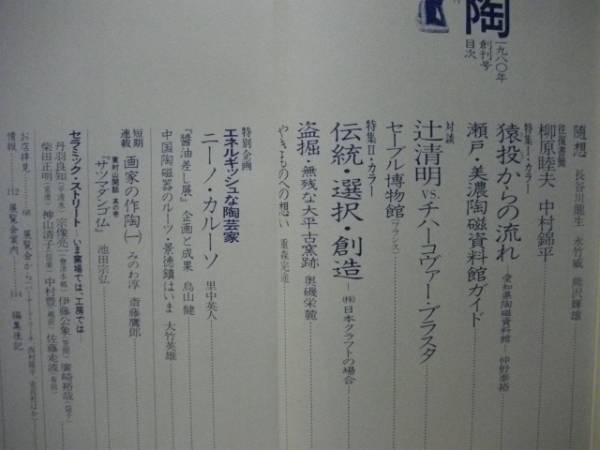 陶
一九八〇年
創刊号
目次
随想 長谷川龍生 永竹威 熊沢輝雄
往復書簡
柳原睦夫 中村錦平
特集I・カラー
猿投からの流れ 愛知県陶磁資料館―仲野泰裕
瀬戸・美濃陶磁資料館ガイド
対談
辻清明VS.チハーコヴァー・ブラスタ
セーブル博物館(フランス)
特集II・カラー
伝統・選択・創造―(株)日本クラフトの場合―
盗掘・無残な大平古窯跡 奥磯栄麓
やきものへの想い 重森完途
特別企画
エネルギッシュな陶芸家
ニーノ・カルーソ 里中英人
『醬油差し展』企画と成果 鳥山健
中国陶磁器のルーツ・景徳鎮はいま 大竹英雄
短期
連載 画家の作陶(一) みのわ淳 斎藤鷹郎
東村山秘話
『サツマダンゴ仏』 池田宗弘
セラミック・ストリート―いま窯場では、工房では―
丹羽良知 宗像亮一(会津本郷) 伊藤公象(笠間) 廣崎裕哉(益子)
柴田正明(常滑) 神山清子(信楽) 中村豊 佐藤走波
お店拝見 展覧会から
情報 112 展覧会案内 114 編集後記